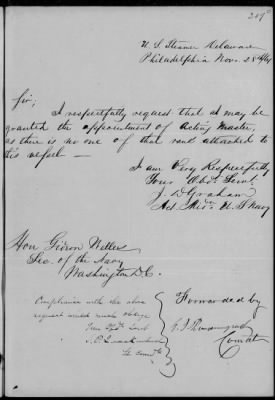 U. S. Steamer Delaware
Philadelphia Nov. 28th/61
Sir;
I respectfully request that I may be
granted the appointment of Acting Master,
as there is no one of that rank attached to
this vessel —
I am Very Respectfully
Your Obdt. Servt.
J. D. Graham
Act. Mid'n U. S. Navy
Hon Gideon Welles
Sec. of the Navy
Washington D.C.
Compliance with the above
request would much oblige
Your Obt. Servt
Lt. Comd'g
Forwarded by
Comdt